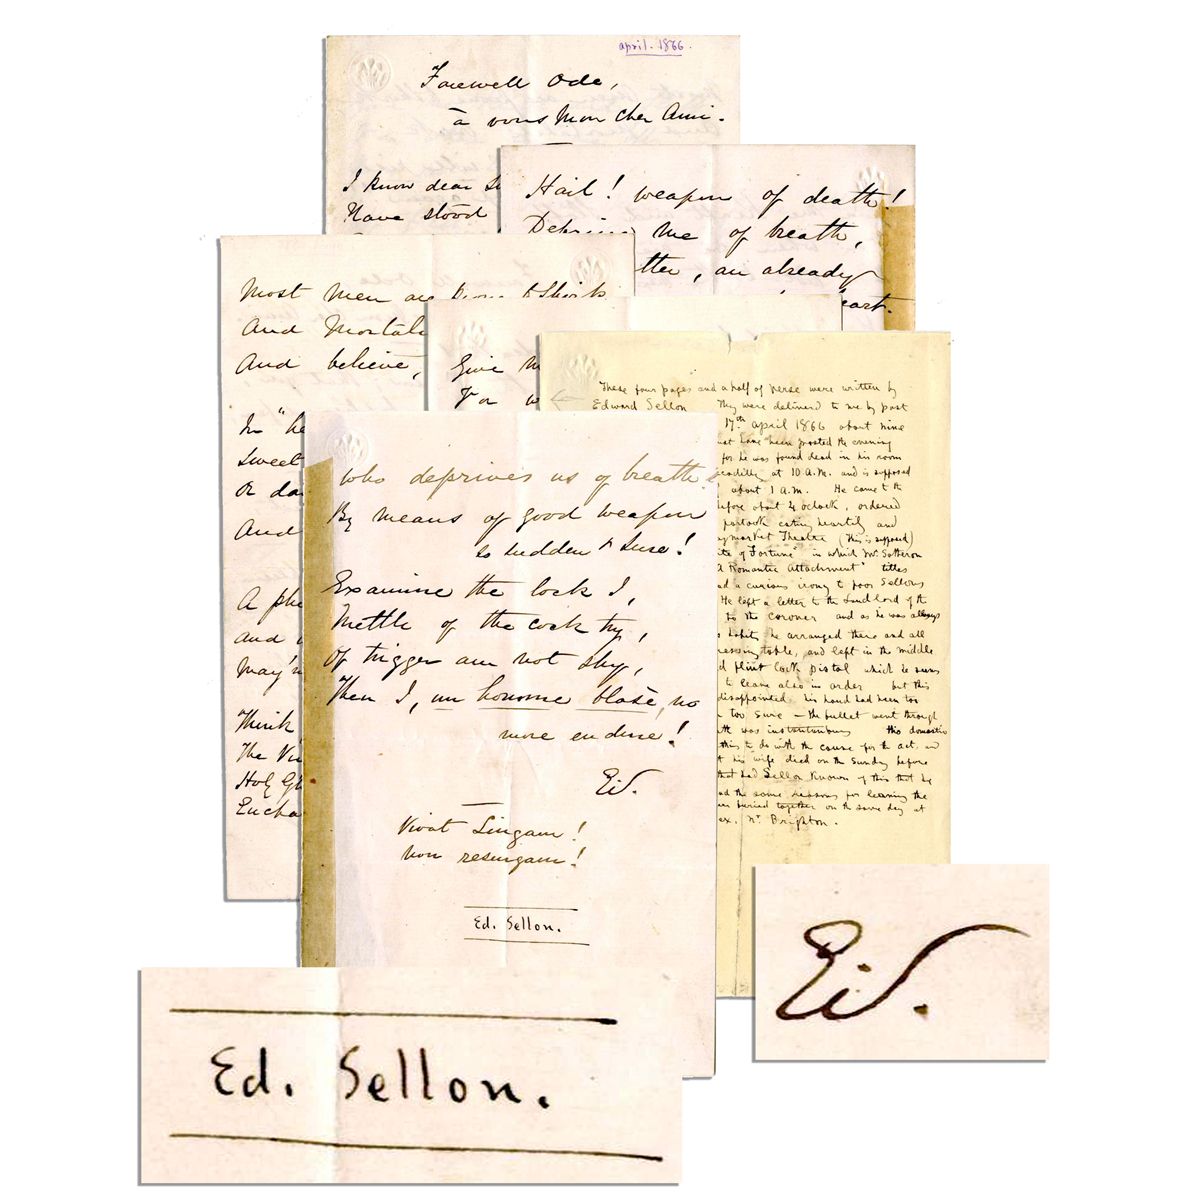 april. 1866.
Farewell Ode,
à vous Mon Cher Ami.
I know dear
Have stood
Hail! weapon of death!
Depriving me of breath,
tter, an already
eart.
Most Men are prone to Shirk
And Mortal
And believe,
In "he
Sweet
Or da
And
A phe
and
May'n
Think
The Vi
Holy Gh
Eucha
Give m
For w
These four pages and a half of verse were written by
Edward Sellon They were delivered to me by post
17th april 1866 about nine
have been posted the evening
for he was found dead in his room
ccadilly at 10 A.M. and is supposed
about 1 A.M. He came to the
before about 4 oclock, ordered
eating heartily and
ymarket Theatre (this is supposed)
te of Fortune" in which Mr. Sothern
A Romantic Attachment" titles
ad a curious irony to poor Sellons
He left a letter to the Land Lord of the
to the coroner and as he was always
habit, he arranged these and all
ressing table, and left in the middle
d flint lock pistol which he
to leave also in order but this
disappointed his hand had been too
too sure — the bullet went through
th was instantaneous tho domestic
thing to do with the cause for the act, as
his wife died on the Sunday before
that had Sellon known of this that he
had the same reasons for leaving the
buried together on the same day at
ex. Nr Brighton.
Who deprives us of breath
By means of good weapon
so sudden & sure!
Examine the lock I,
Mettle of the cock try,
Of trigger am not shy,
Then I, un homme blasé, no
more endure!
Ed.
Vivat Lingam!
Non resurgam!
Ed. Sellon.
Ed.
Ed. Sellon.